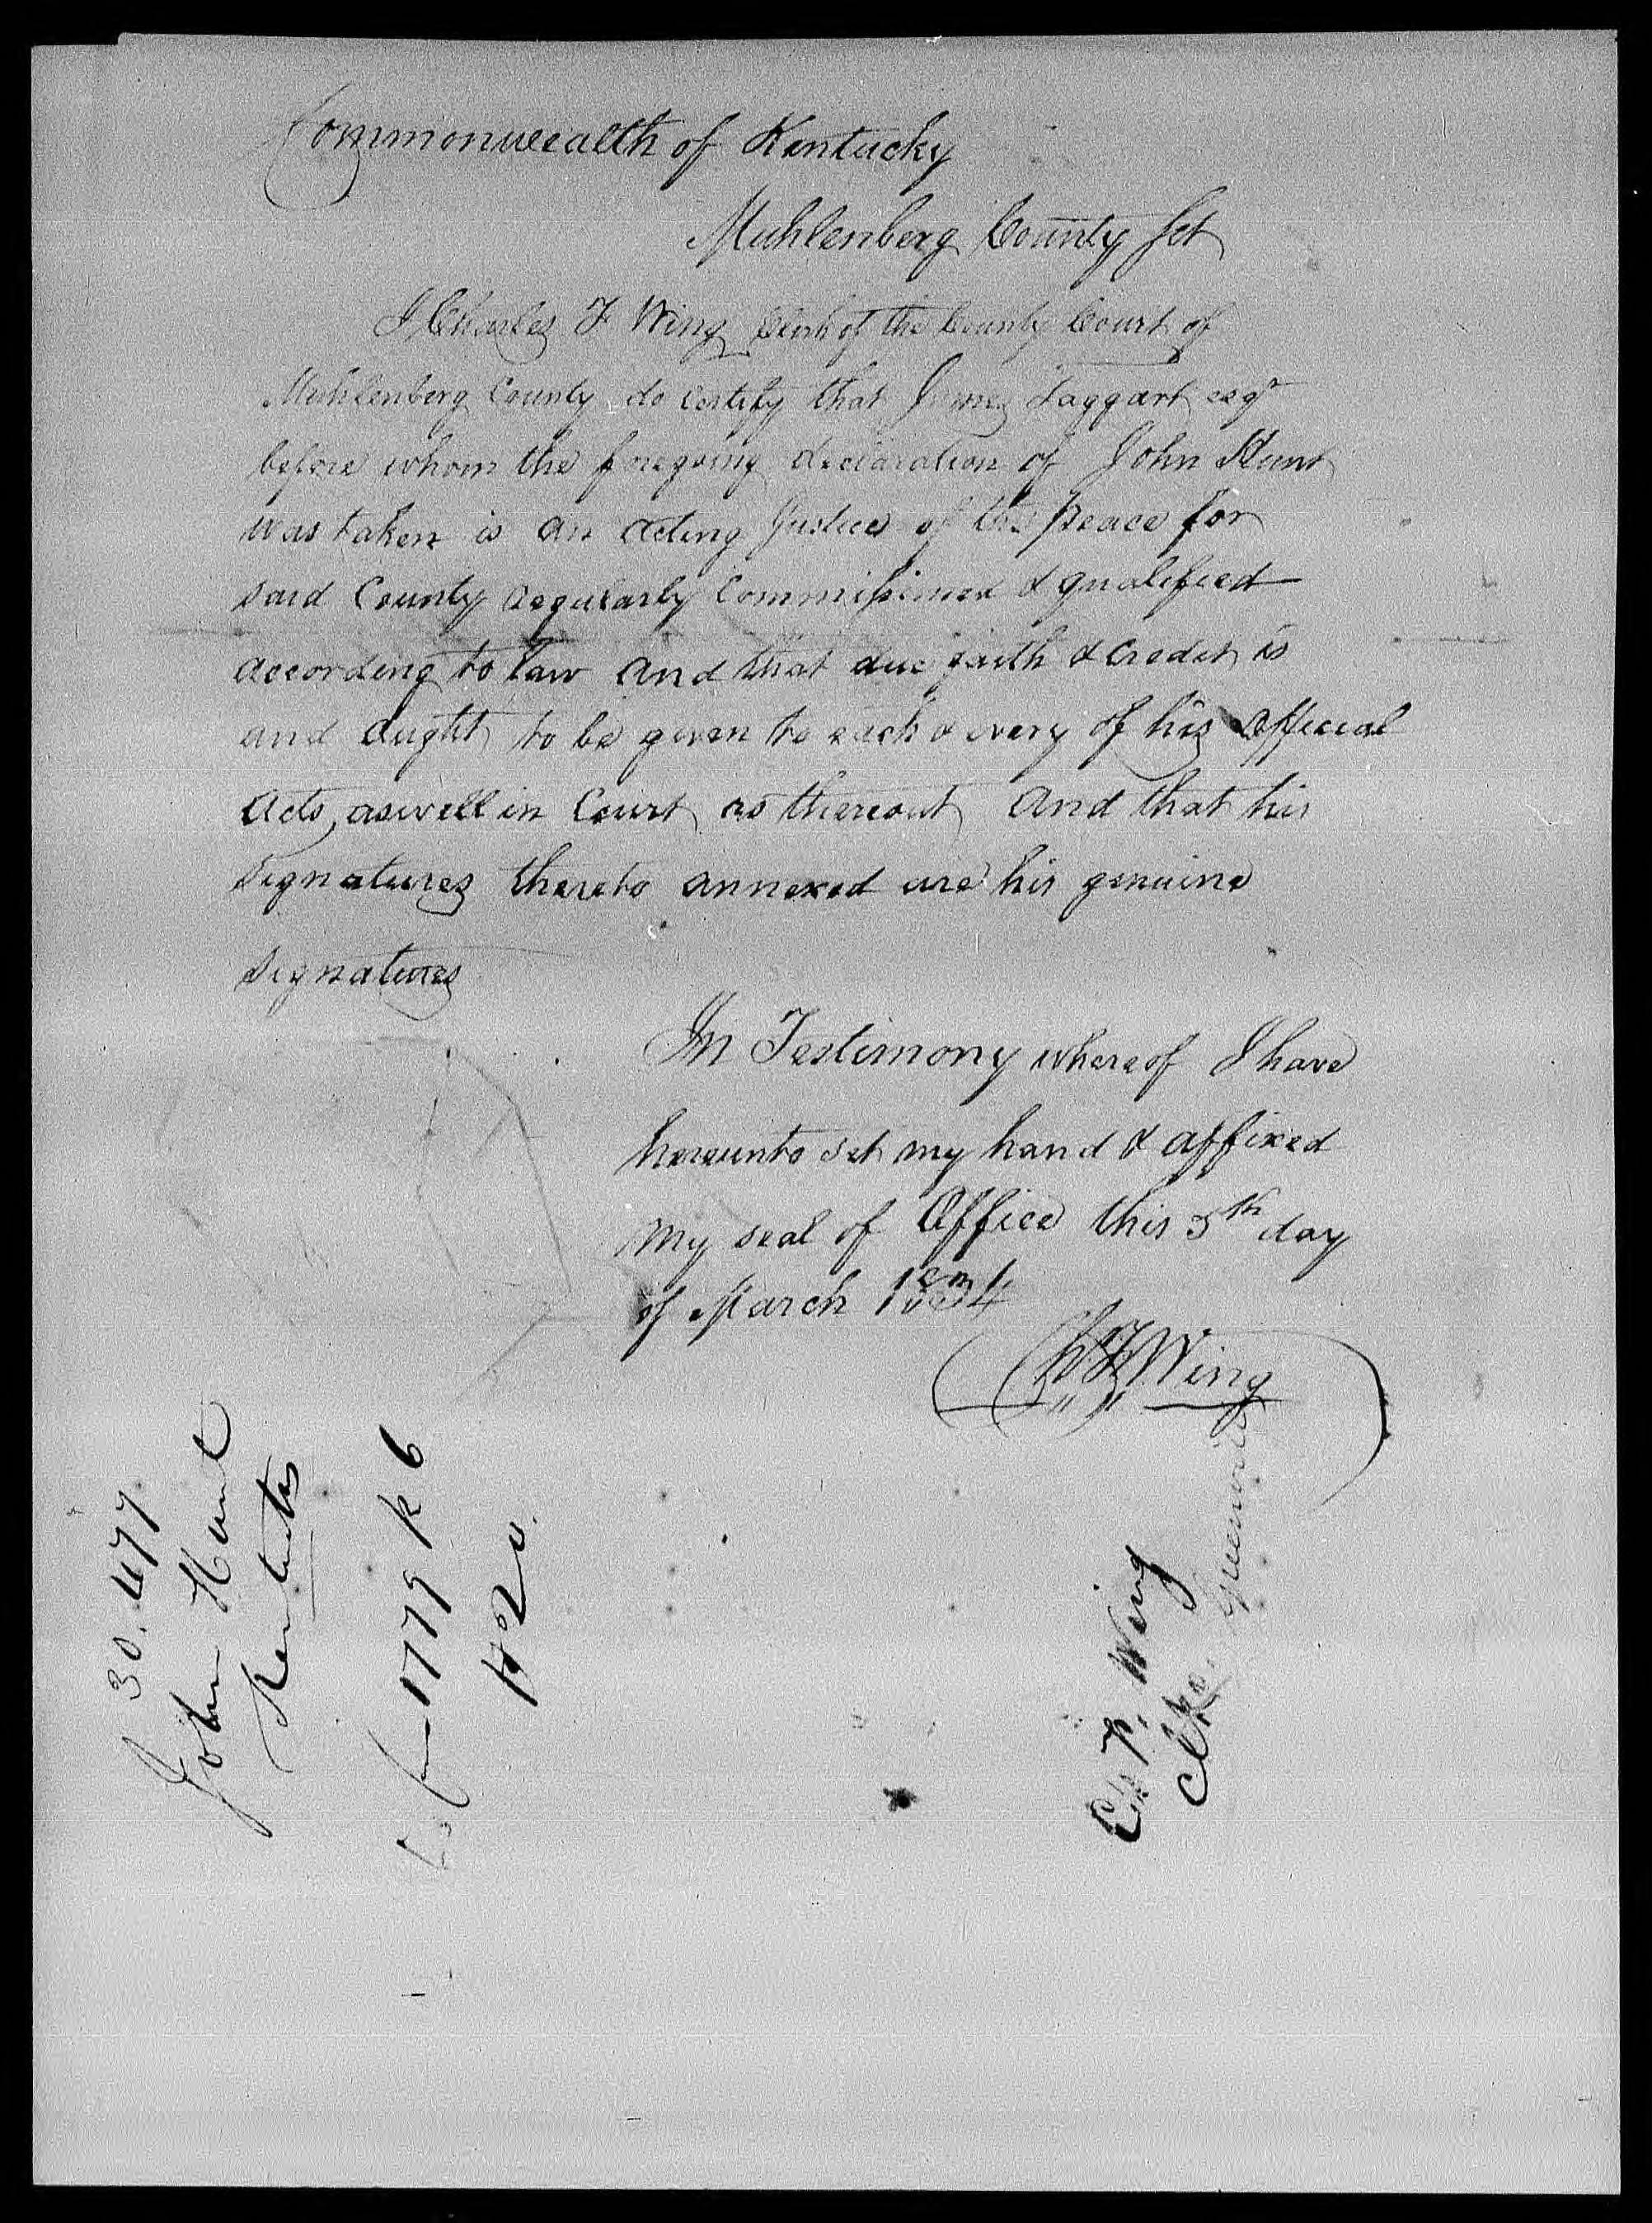 Commonwealth of Kentucky
Muhlenberg County Sct
I Charles F Wing Clerk of the County Court of
Muhlenberg County do certify that James Taggart esqr
before whom the foregoing declaration of John Hunt
was taken is an acting Justice of the peace for
said County regularly Commissioned & qualified
according to law and that due faith & credit is
and aught to be given to each & every of his official
acts, aswell in Court as thereout and that his
signatures thereto annexed are his genuine
signatures
In Testimony whereof I have
hereunto set my hand & affixed
my seal of Office this 5th day
of March 1834
Ch F Wing
30.477
John Hunt
Kentucky
1779
420
Ch F. Wing
Clk. Greenville